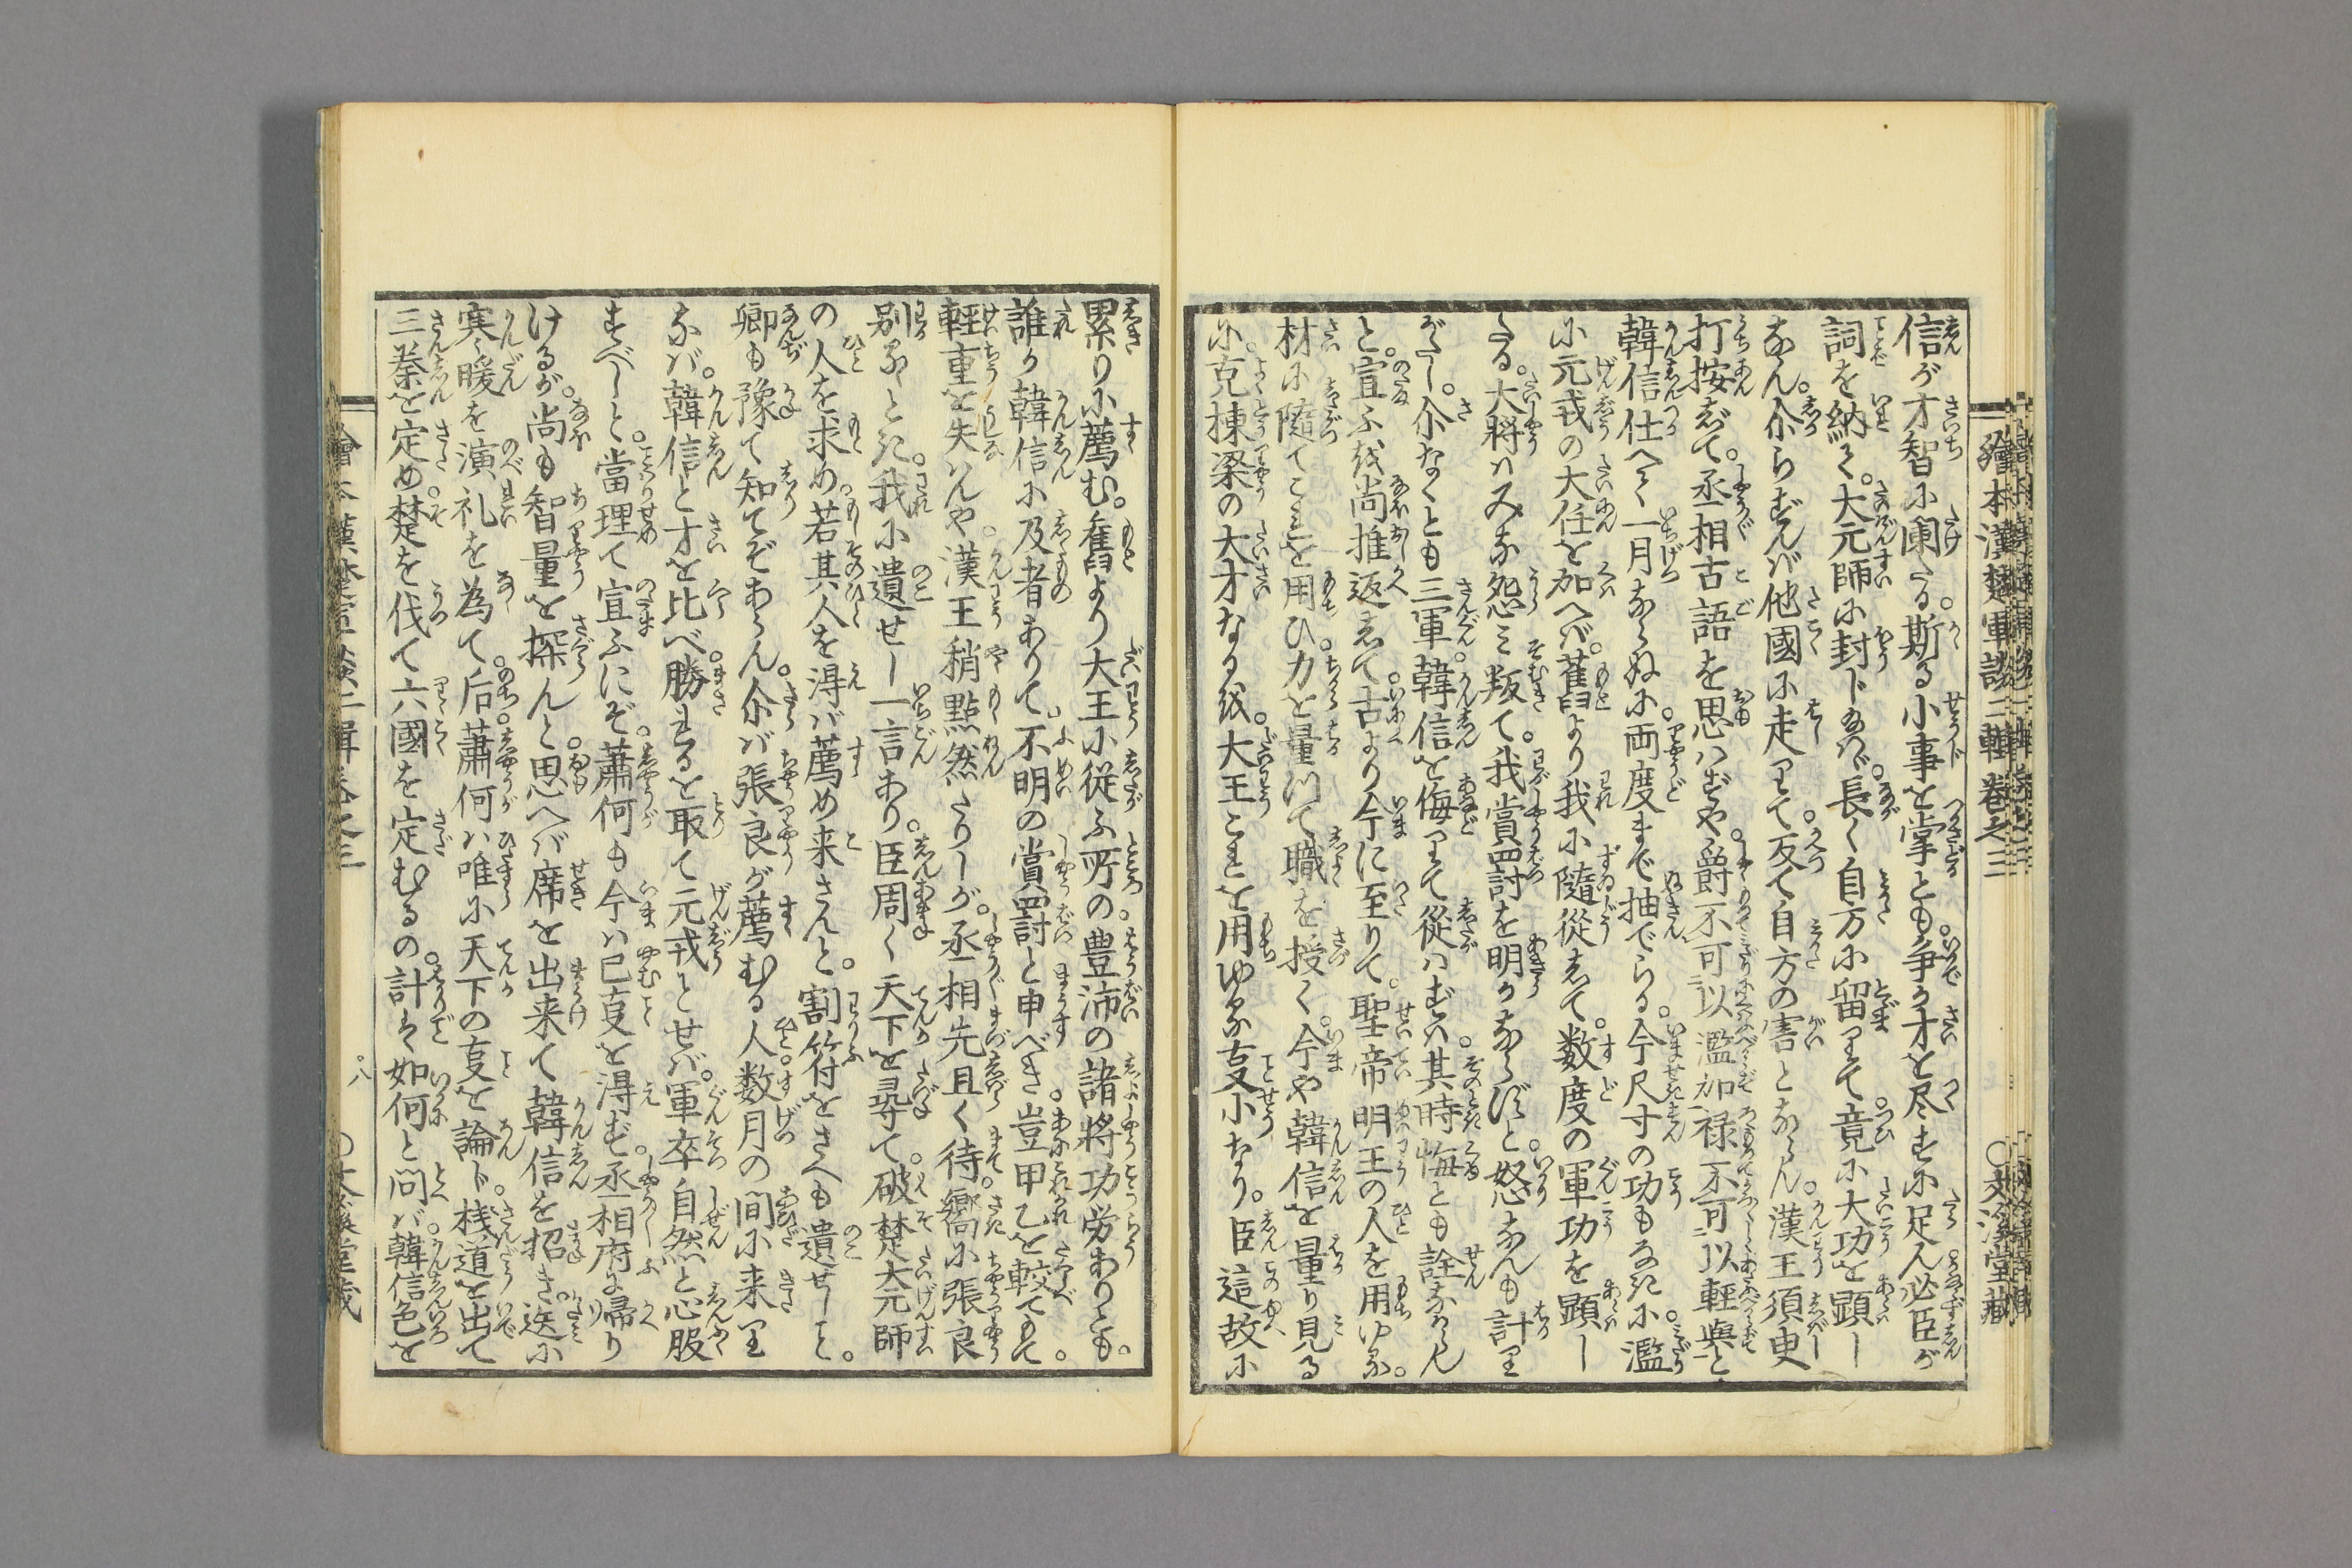 繪本漢楚軍談二輯 巻之三　〇文溪堂藏
信が才智に闌たる。斯る小事を掌とも。争か才を尽すに足ん必臣が
詞を納て。大元師に封じ給へ。長く自方に留りて。竟に大功を顕し
なん。尒らずんバ他國に走りて。反て自方の害とならん。漢王須臾
打按じて。丞相古語を思ハずや。爵不可以濫加禄不可以輕與と
韓信仕へて一月ならぬに。両度まで抽でらる。今尺寸の功もなきに。濫
に元戎の大任を加へバ。舊より我に隨從して。数度の軍功を顕し
たる。大將ハみな怨ミ叛て。我賞罸を明かならずと。怒なんも計り
がたし。尒なくとも三軍。韓信を侮りて從ハずバ。其時悔とも詮なからん
と。宣ふを尚推返して。古より今に至りて。聖帝明王の人を用ゆる。
材に隨てこれを用ひ。力を量つて職を授く。今や韓信を量り見る
に。克棟梁の大才なるを。大王これを用ゆる支小なり。臣這故に
累りに薦む。舊より大王に從ふ所の。豊沛の諸將功労ありとも。
誰か韓信に及者ありて。不明の賞罸と申べき。豈甲乙を較てもて。
輕重を失ハんや。漢王稍點然たりしが。丞相先且く待。嚮に張良
別るゝとき。我に遺せし一言あり。臣周く天下を尋て。破楚大元師
の人を求め。若其人を得バ薦め来さんと。割符をさへも遺せしと。
卿も豫て知てぞあらん。尒バ張良が薦むる人。数月の間に来り
なバ。韓信と才を比べ。勝れるを取て元戎とせバ。軍卒自然と心服
すべしと。當理て宣ふにぞ。蕭何も今ハ已支を得ず。丞相府に帰り
けるが。尚も智量を探んと思へバ。席を出来て韓信を招き。迭に
寒暖を演礼を為て。后蕭何ハ唯に天下の支を論じ。棧道を出て
三秦を定め。楚を伐て六國を定むるの。計は如何と問バ。韓信色を
八